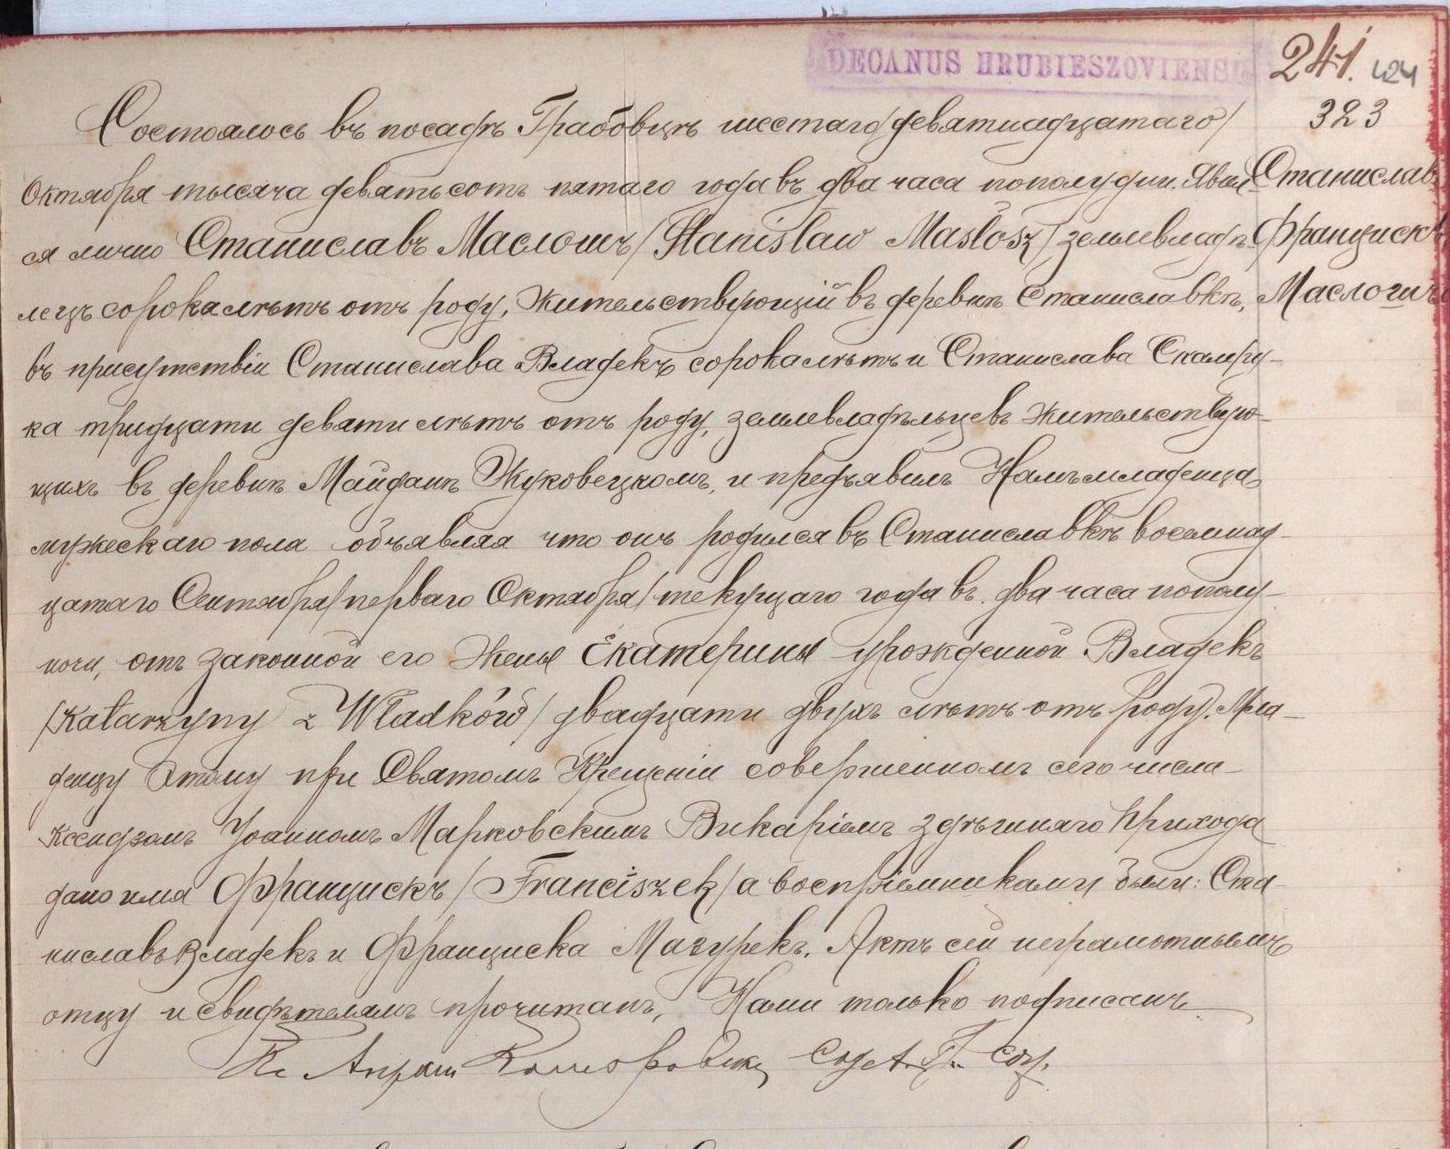 DECANUS HRUBIESZOVIENSIS
241.
424
323
Станиславъ
Францискъ
Маслошъ
Состоялось въ посадѣ Грабовцѣ шестаго/девятнадцатаго/
Октября тысяча девятьсотъ пятаго года въ два часа пополудни. Явил-
ся лично Станиславъ Маслошъ /Stanisław Masłosz/ землевладѣ-
лецъ сорока лѣтъ отъ роду, жительствующій въ деревнѣ Станиславкѣ,
въ присутствіи Станислава Владекъ сорока лѣтъ и Станислава
ка тридцати девяти лѣтъ отъ роду, землевладѣльцевъ жительствую-
щихъ въ деревнѣ Майданѣ Жуковецкомъ, и предъявилъ Намъ младенца
мужескаго пола объявляя что онъ родился въ Станиславкѣ восемнад-
цатаго Сентября/перваго Октября/текущаго года въ два часа пополу-
ночи, отъ законной его жены Екатерины урожденной Владекъ
/Katarzyny z Władków/ двадцати двухъ лѣтъ отъ роду. Мла-
денцу этому при Святомъ Крещеніи совершенномъ сего числа
Ксендзомъ Іоанномъ Марковскимъ Викаріемъ здѣшняго прихода
дано имя Францискъ /Franciszek/ а воспріемниками были: Ста-
ниславъ Владекъ и Франциска Мазурекъ. Актъ сей неграмотнымъ
отцу и свидѣтелямъ прочитанъ, Нами только подписанъ
Кс.